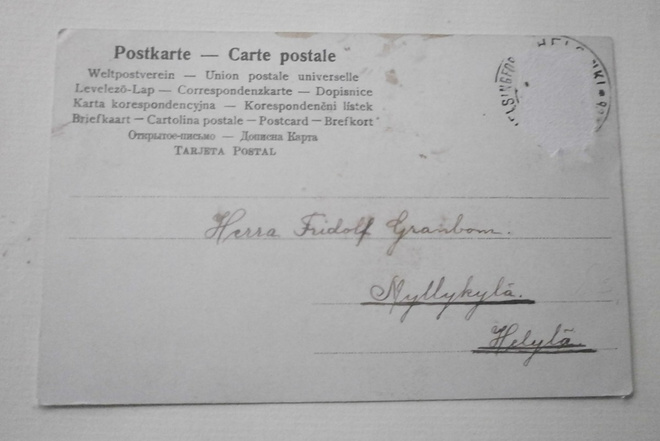 Postkarte — Carte postale
Weltpostverein — Union postale universelle
Levelező-Lap — Correspondenzkarte — Dopisnice
Karta korespondencyjna — Korespondenční lístek
Briefkaart — Cartolina postale — Postcard — Brefkort
Открытое-письмо — Дописна Карта
TARJETA POSTAL
Herra Fridolf Granbom.
Nyllykylä.
Helylä.